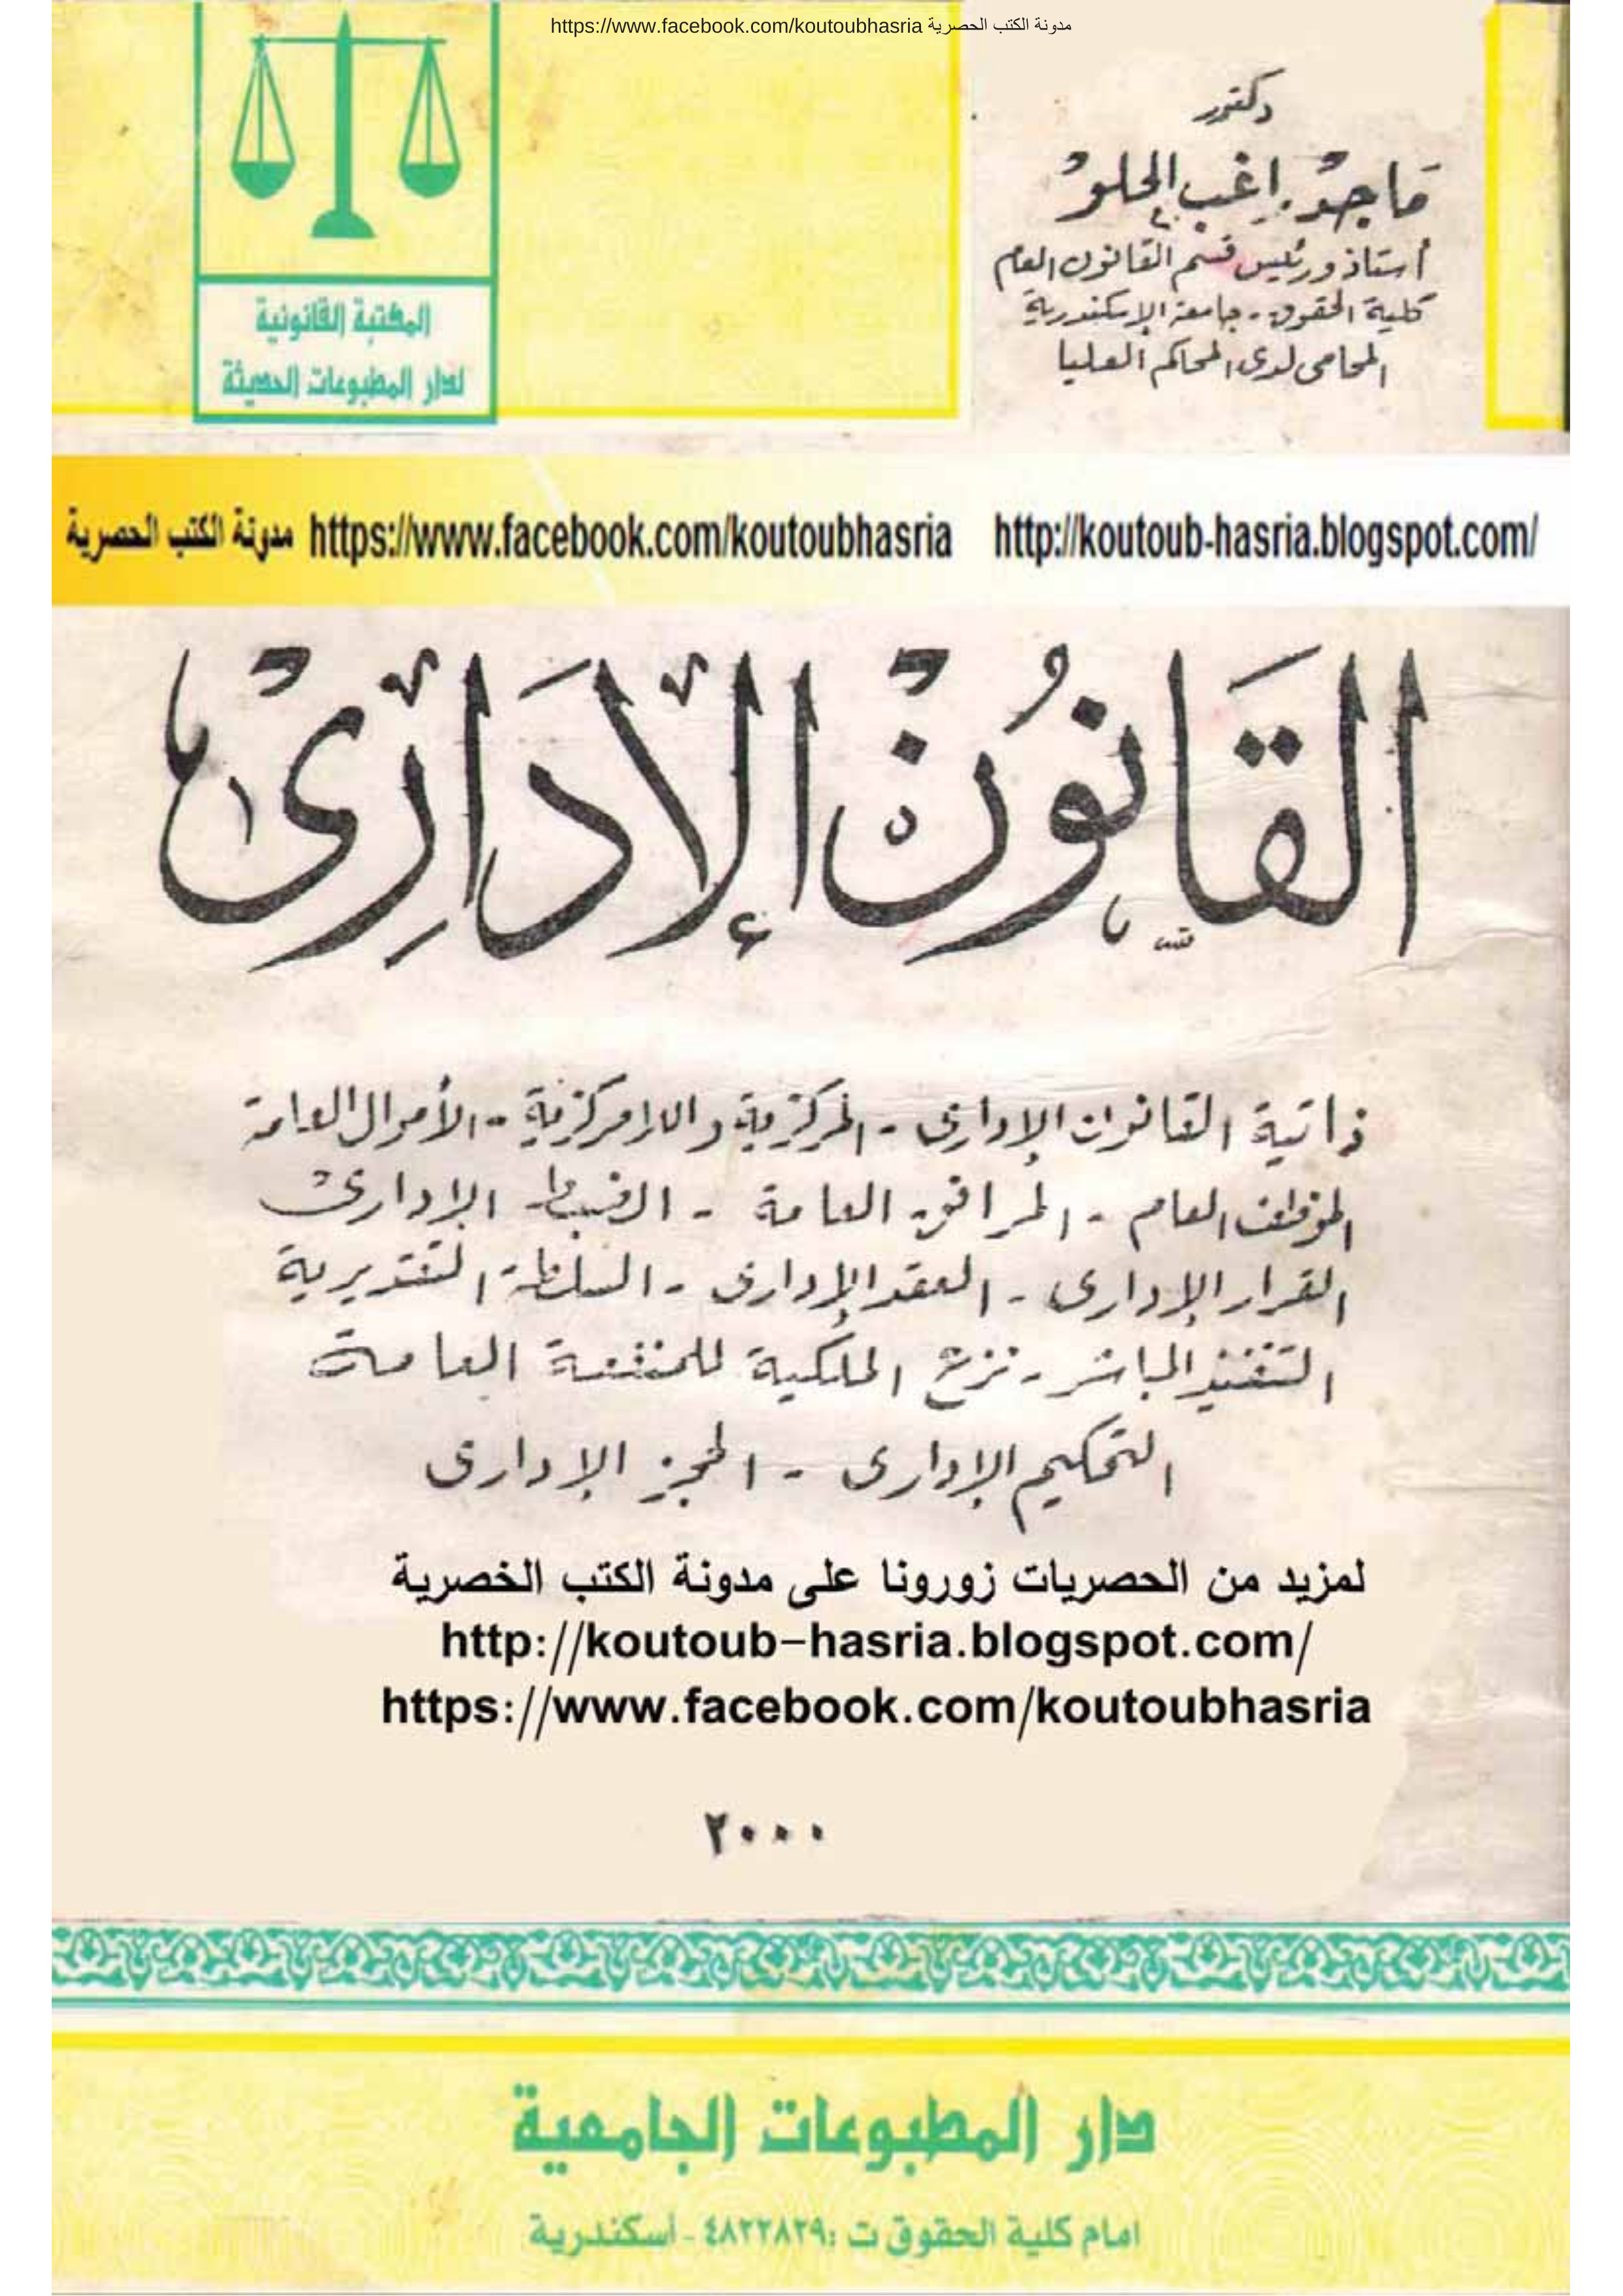 https://www.facebook.com/koutoubhasria مدونة الكتب الحصرية
دكتور
ماجد راغب الحلو
أستاذ ورئيس قسم القانون العام
كلية الحقوق - جامعة الإسكندرية
المحامى لدى المحاكم العليا
المكتبة القانونية
لدار المطبوعات الحديثة
مدونة الكتب الحصرية https://www.facebook.com/koutoubhasria http://koutoub-hasria.blogspot.com/
القَانُون الإدَارِى
ذاتية القانون الإدارى - المركزية واللامركزية - الأموال العامة
الموظف العام - المرافق العامة - الضبط الإدارى
القرار الإدارى - العقد الإدارى - السلطة التقديرية
التنفيذ المباشر - نزع الملكية للمنفعة العامة
التحكيم الإدارى - الحجز الإدارى
لمزيد من الحصريات زورونا على مدونة الكتب الخصرية
http://koutoub-hasria.blogspot.com/
https://www.facebook.com/koutoubhasria
٢٠٠٠
دار المطبوعات الجامعية
امام كلية الحقوق ت :٤٨٢٢٨٢٩ - أسكندرية